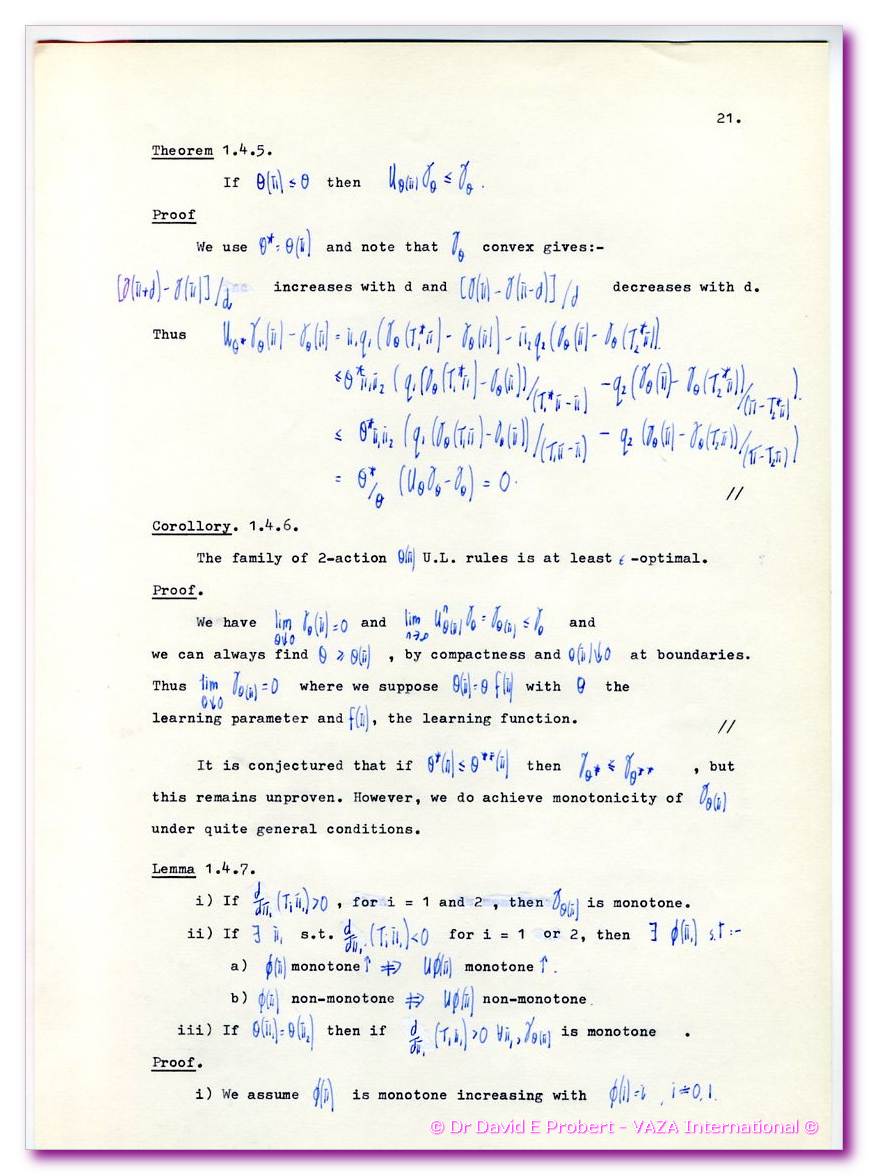 21.
Theorem 1.4.5.
If θ(π) ≤ θ then U_θ(π) γ_θ ≤ γ_θ.
Proof
We use θ* = θ(π) and note that γ_θ convex gives:-
[γ(π+d) - γ(π)]/d increases with d and [γ(π) - γ(π-d)]/d decreases with d.
Thus U_θ* γ_θ(π) - γ_θ(π) = π₁q₁(γ_θ(T₁*π) - γ_θ(π)) - π₂q₂(γ_θ(π) - γ_θ(T₂*π)).
≤ θ*π₁π₂ (q₁(γ_θ(T₁*π) - γ_θ(π))/(T₁*π - π) - q₂(γ_θ(π) - γ_θ(T₂*π))/(π - T₂*π)).
≤ θ*π₁π₂ (q₁(γ_θ(T₁π) - γ_θ(π))/(T₁π - π) - q₂(γ_θ(π) - γ_θ(T₂π))/(π - T₂π))
= θ*/θ (U_θ γ_θ - γ_θ) = 0.
//
Corollory. 1.4.6.
The family of 2-action θ(π) U.L. rules is at least ε-optimal.
Proof.
We have lim θ↓0 γ_θ(π) = 0 and lim n→∞ Uⁿ_θ(π) γ_θ = γ_θ(π) ≤ γ_θ and
we can always find θ ≥ θ(π) , by compactness and θ(π)↓0 at boundaries.
Thus lim θ↓0 γ_θ(π) = 0 where we suppose θ(π) = θ f(π) with θ the
learning parameter and f(π), the learning function.
//
It is conjectured that if θ*(π) ≤ θ**(π) then γ_θ* ≤ γ_θ** , but
this remains unproven. However, we do achieve monotonicity of γ_θ(π)
under quite general conditions.
Lemma 1.4.7.
i) If d/dπ₁ (Tᵢπ₁) > 0 , for i = 1 and 2 , then γ_θ(π) is monotone.
ii) If ∃ π₁ s.t. d/dπ₁ (Tᵢπ₁) < 0 for i = 1 or 2, then ∃ φ(π₁) s.t :-
a) φ(π) monotone ↑ ⇏ Uφ(π) monotone ↑.
b) φ(π) non-monotone ⇏ Uφ(π) non-monotone.
iii) If θ(π₁) = θ(π₂) then if d/dπ₁ (T₁π₁) > 0 ∀π₁, γ_θ(π) is monotone .
Proof.
i) We assume φ(π) is monotone increasing with φ(i) = i , i = 0,1.
© Dr David E Probert - VAZA International ©